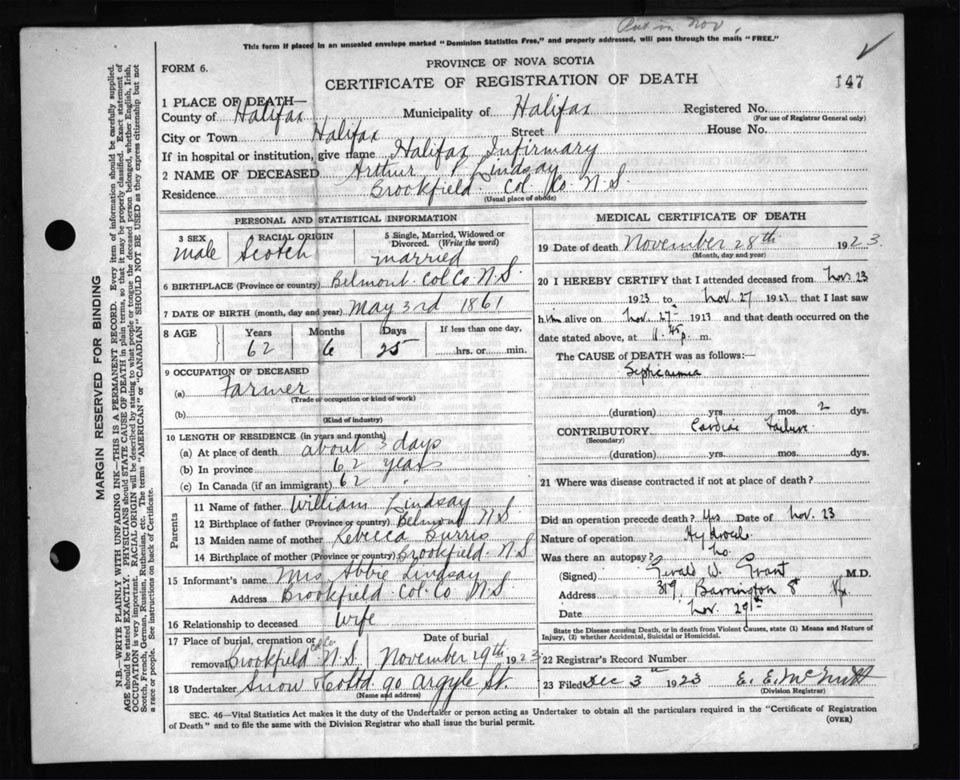 Put in Nov
This form if placed in an unsealed envelope marked "Dominion Statistics Free," and properly addressed, will pass through the mails "FREE."
FORM 6.
PROVINCE OF NOVA SCOTIA
CERTIFICATE OF REGISTRATION OF DEATH
147
1 PLACE OF DEATH—
County of Halifax Municipality of Halifax Registered No.
(For use of Registrar General only)
City or Town Halifax Street House No.
If in hospital or institution, give name Halifax Infirmary
2 NAME OF DECEASED Arthur P. Lindsay
Residence Brookfield Col. Co. N.S.
(Usual place of abode)
PERSONAL AND STATISTICAL INFORMATION
3 SEX 4 RACIAL ORIGIN 5 Single, Married, Widowed or Divorced. (Write the word)
male Scotch married
6 BIRTHPLACE (Province or country) Belmont Col Co. N.S.
7 DATE OF BIRTH (month, day and year) May 3rd 1861
8 AGE Years Months Days If less than one day,
62 6 25 hrs. or min.
9 OCCUPATION OF DECEASED
(a) Farmer
(Trade or occupation or kind of work)
(b)
(Kind of industry)
10 LENGTH OF RESIDENCE (in years and months)
(a) At place of death about 3 days
(b) In province 62 years
(c) In Canada (if an immigrant) 62 "
Parents
11 Name of father William Lindsay
12 Birthplace of father (Province or country) Belmont N.S.
13 Maiden name of mother Rebecca Burris
14 Birthplace of mother (Province or country) Brookfield N.S
15 Informant's name Mrs Abbie Lindsay
Address Brookfield Col. Co N.S
16 Relationship to deceased wife
17 Place of burial, cremation or Date of burial
removal Brookfield Col Co. N.S. November 29th 1923
18 Undertaker Snow & Co Ltd. 90 Argyle St.
(Name and address)
MEDICAL CERTIFICATE OF DEATH
19 Date of death November 28th 1923.
(Month, day and year)
20 I HEREBY CERTIFY that I attended deceased from Nov. 23
1923 to Nov. 27 1923 that I last saw
h im alive on Nov. 27th 1923 and that death occurred on the
date stated above, at 11.45 p. m.
The CAUSE OF DEATH was as follows:—
Septicaemia
(duration) yrs. mos. 2 dys.
CONTRIBUTORY Cardiac Failure
(Secondary)
(duration) yrs. mos. dys.
21 Where was disease contracted if not at place of death?
Did an operation precede death? Yes Date of Nov. 23
Nature of operation Hydrocele
Was there an autopsy? No.
(Signed) Gerald W. Grant M.D.
Address 319, Barrington St Hfx
Date Nov. 29th
State the Disease causing Death, or in death from Violent Causes, state (1) Means and Nature of Injury, (2) whether Accidental, Suicidal or Homicidal.
22 Registrar's Record Number
23 Filed Dec 3rd 1923 E. E. McNutt
(Division Registrar)
SEC. 46—Vital Statistics Act makes it the duty of the Undertaker or person acting as Undertaker to obtain all the particulars required in the "Certificate of Registration
of Death" and to file the same with the Division Registrar who shall issue the burial permit. (OVER)
MARGIN RESERVED FOR BINDING
N.B.—WRITE PLAINLY WITH UNFADING INK—THIS IS A PERMANENT RECORD. Every item of information should be carefully supplied.
AGE should be stated EXACTLY. PHYSICIANS should STATE CAUSE OF DEATH in plain terms, so that it may be properly classified. Exact statement of
OCCUPATION is very important. RACIAL ORIGIN will be described by stating to what people or tongue the deceased person belonged, whether English, Irish,
Scotch, French, German, Russian, Ruthenian, etc. The terms "AMERICAN" or "CANADIAN" SHOULD NOT BE USED as they express citizenship but not
a race or people. See instructions on back of Certificate.